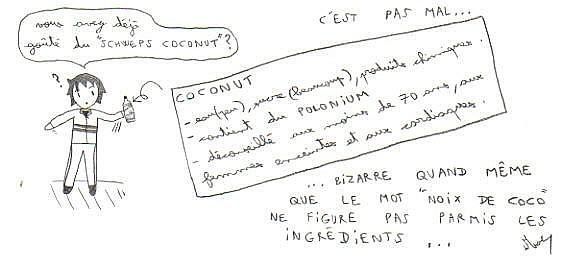 vous avez déjà
goûté du "SCHWEPS COCONUT"?
C'EST PAS MAL...
?
COCONUT
- eau(peu), sucre (beaucoup), produits chimiques.
- contient du POLONIUM
- déconseillé aux moins de 70 ans, aux
femmes enceintes et aux cardiaques.
... BIZARRE QUAND MÊME
QUE LE MOT "NOIX DE COCO"
NE FIGURE PAS PARMIS LES
INGRÉDIENTS ...